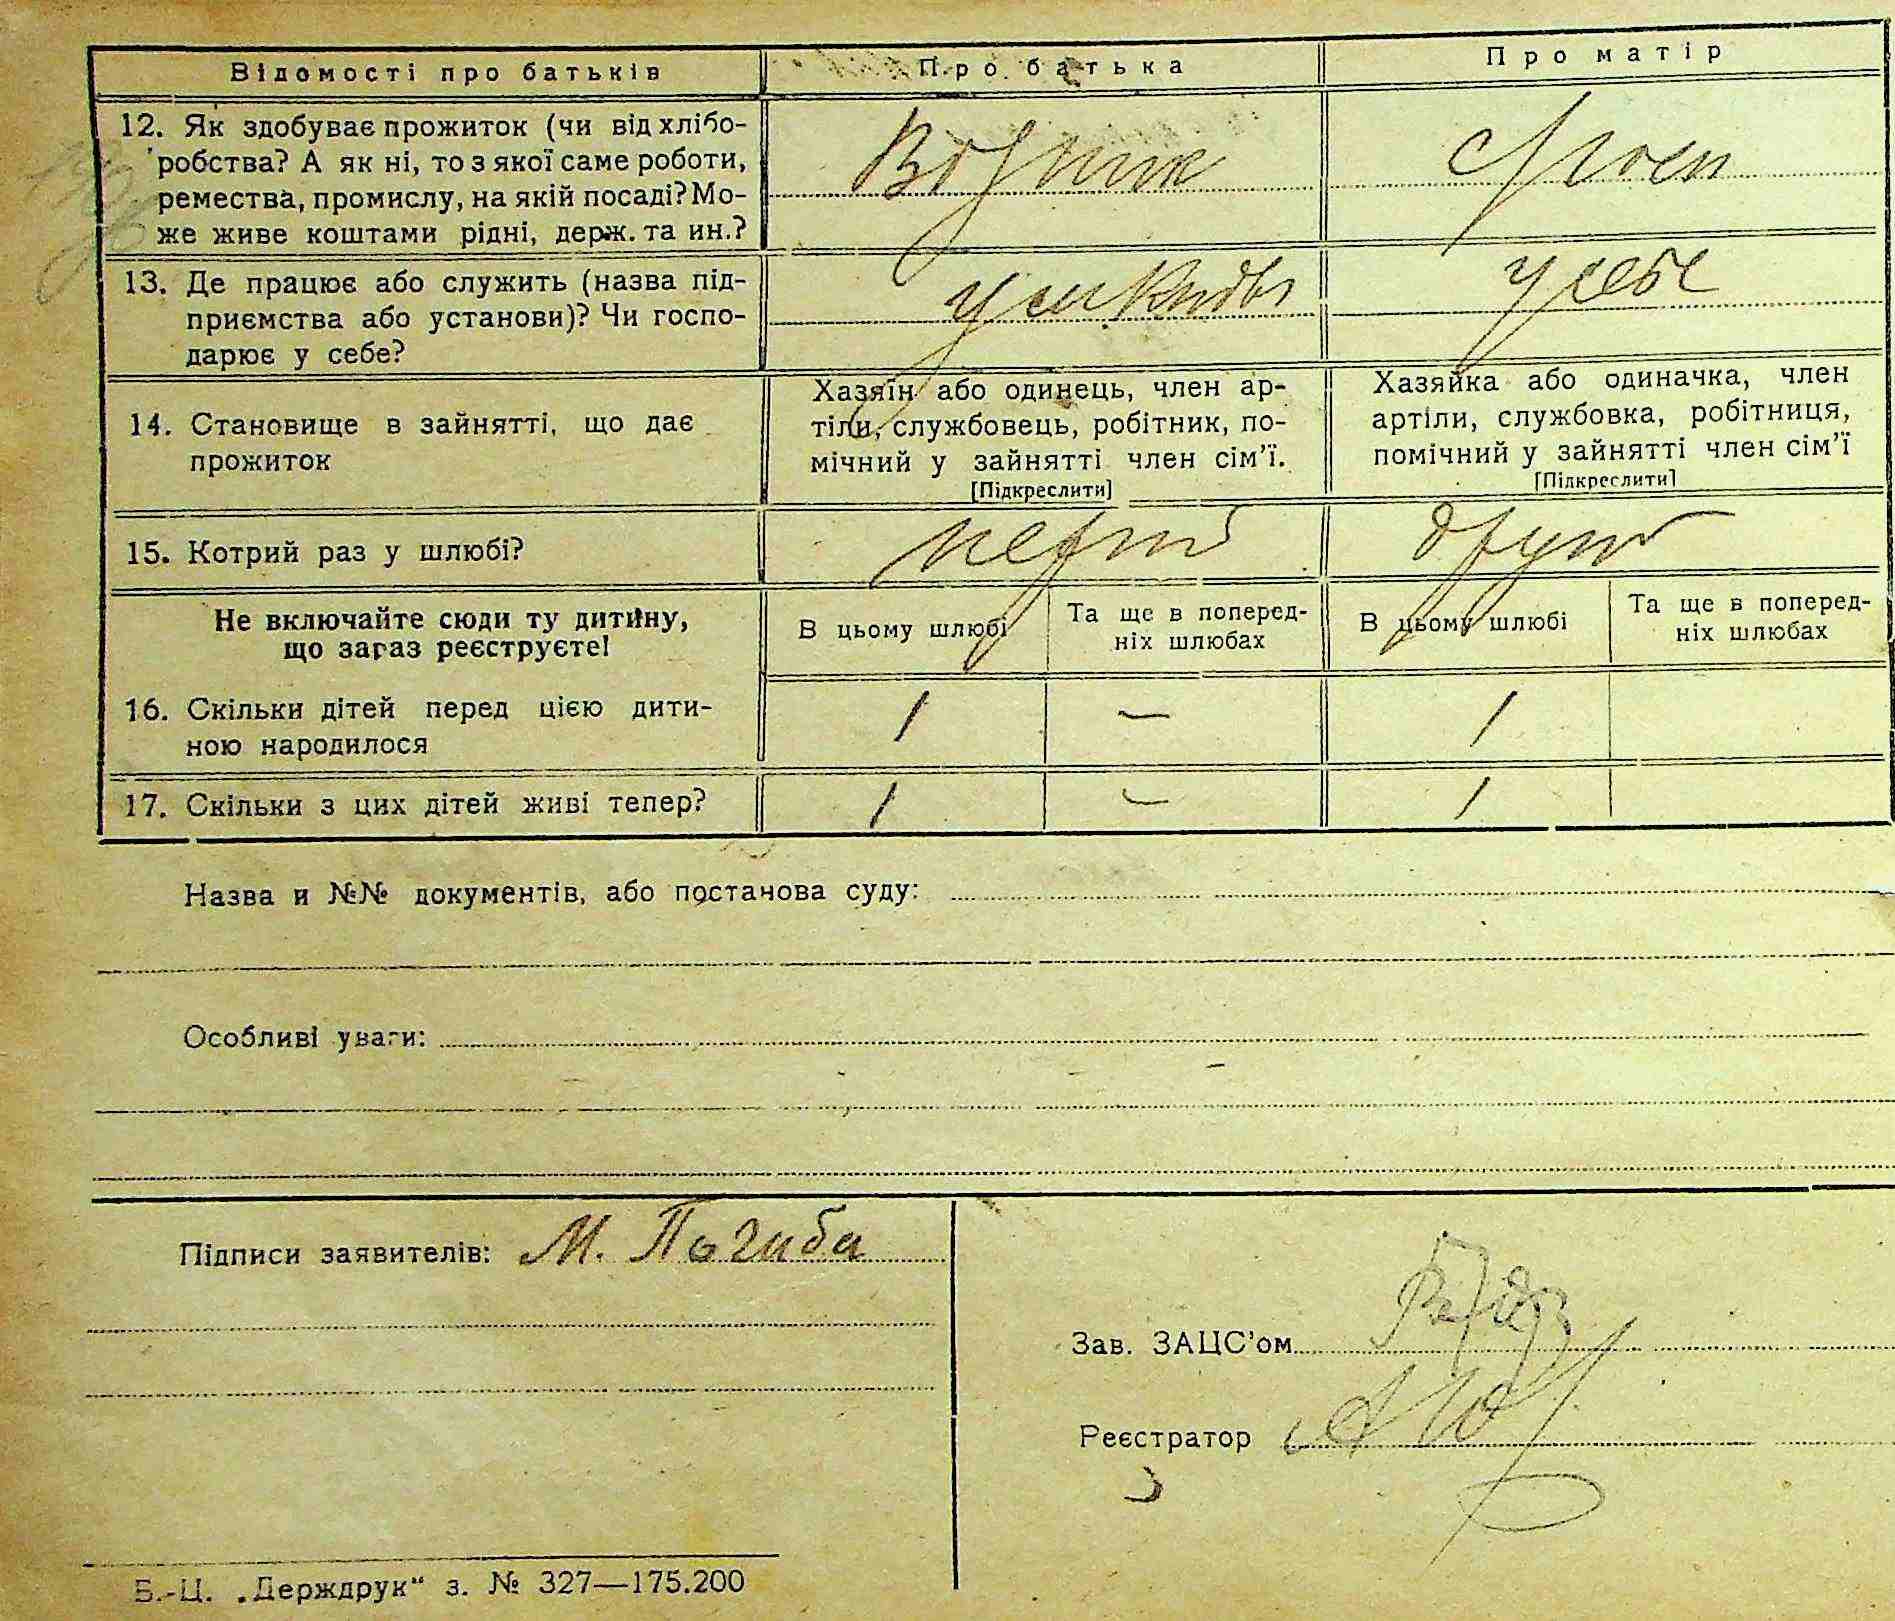 Відомості про батьків
Про батька
Про матір
12. Як здобуває прожиток (чи від хлібо-
робства? А як ні, то з якої саме роботи,
ремества, промислу, на якій посаді? Мо-
же живе коштами рідні, держ. та ин.?
13. Де працює або служить (назва під-
приємства або установи)? Чи госпо-
дарює у себе?
у себе
14. Становище в зайнятті, що дає
прожиток
Хазяїн або одинець, член ар-
тіли, службовець, робітник, по-
мічний у зайнятті член сім’ї.
[Підкреслити]
Хазяйка або одиначка, член
артіли, службовка, робітниця,
помічний у зайнятті член сім’ї
[Підкреслити]
15. Котрий раз у шлюбі?
Не включайте сюди ту дитину,
що зараз реєструєте!
В цьому шлюбі
Та ще в поперед-
ніх шлюбах
В цьому шлюбі
Та ще в поперед-
ніх шлюбах
16. Скільки дітей перед цією дити-
ною народилося
1 — 1
17. Скільки з цих дітей живі тепер?
1 — 1
Назва и №№ документів, або постанова суду:
Особливі уваги:
Підписи заявителів: М. Погиба
Зав. ЗАЦС’ом
Реєстратор
Б.-Ц. „Держдрук“ з. № 327—175.200